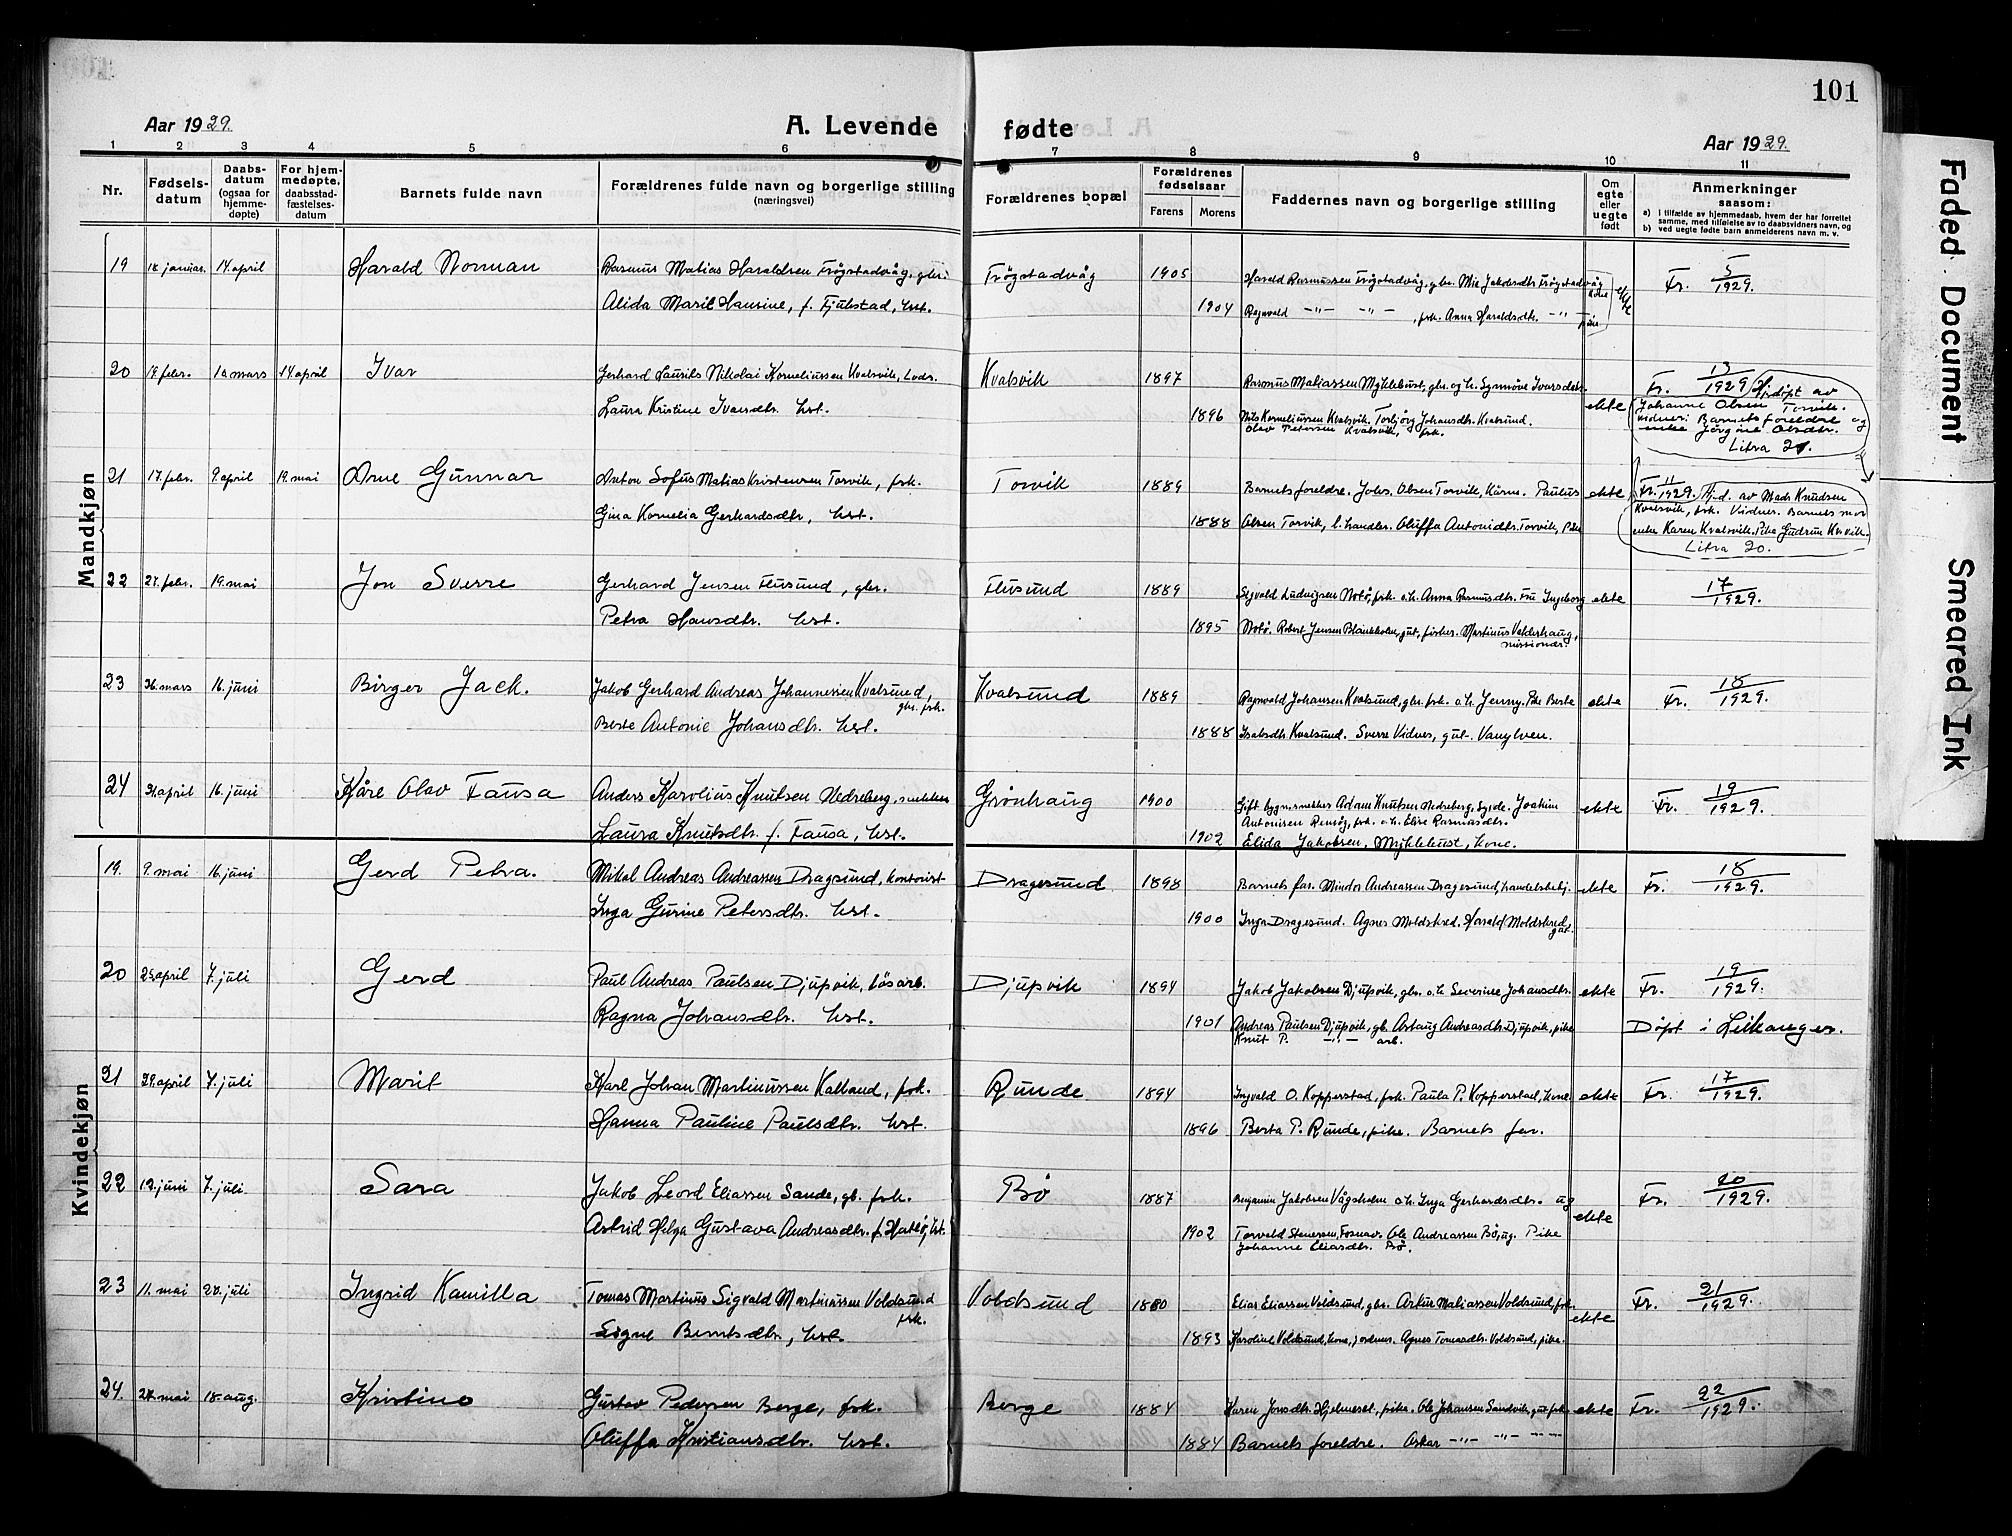 101
Aar 1929.
A. Levende fødte
Aar 1929.
1 2 3 4 5 6 7 8 9 10 11
Nr.
Fødsels-
datum
Daabs-
datum
(ogsaa for
hjemme-
døpte)
For hjem-
medøpte,
daabsstad-
fæstelses-
datum
Barnets fulde navn
Forældrenes fulde navn og borgerlige stilling
(næringsvei)
Forældrenes bopæl
Forældrenes
fødselsaar
Farens Morens
Faddernes navn og borgerlige stilling
Om
egte
eller
uegte
født
Anmerkninger
saasom:
a) I tilfælde av hjemmedaab, hvem der har forrettet
samme, med tilføielse av to daabsvidners navn, og
b) ved uegte fødte barn anmelderens navn m. v.
Mandkjøn
19 18 januar. 14. april Harald Norman Rasmus Matias Haraldsen Frøystadvåg, gbr. Frøystadvåg 1905 Harald Rasmussen Frøystadvåg, gbr. Mie Jakobsdtr. Frøystadvåg kone ekte Fr. 5/1929.
Alida Marie Hansine, f. Fjukstad, hst. 1904 Ragnvald —"— —"—, fsk. Anna Haraldsdtr. —"— pike
20 14 april Ivar Gerhard Laurits Nikolai Korneliussen Kvalsvik, Lods. Kvalsvik 1897 Rasmus Matiassen Myklebust, gbr. og h. Synnøve Ivarsdtr. ekte Fr. 13/1929 Hj.døpt av
Laura Kristine Ivarsdtr. hst. 1896 Nils Korneliussen Kvalsvik. Torbjørg Johansdtr. Kvalsund.
Olav Petersen Kvalsvik, fsk.
Johanne Olsen Torvik.
vidner: Barnets foreldre og
enke Jørgine Olsdtr.
Litra 21.
21 17. febr. 9. april 19. mai Arne Gunnar Anton Sofus Matias Kristensen Torvik, fsk. Torvik 1889 Barnets foreldre. Johs. Olsen Torvik, Kårne. Paulus ekte Fr. 11/1929. Hj.d. av Mads Knudsen
Gina Kornelia Gerhardsdtr, hst. 1888 Olsen Torvik, l. handler. Oluffa Antonidtr. Torvik, pike
Kvalsvik, fsk. Vidner. Barnets mor
enke Karen Kvalsvik. Pike Gudrun Kvalsvik.
Litra 20.
22 27. febr. 19. mai Jon Sverre Gerhard Jensen Flusund, gbr. Flusund 1889 Sigvald Ludvigsen Notø, fsk. o.h. Anna Rasmusdtr. Fru Ingeborg ekte 17/1929.
Petra Hansdtr. hst. 1895 Notø. Robert Jensen Blankholm, gut, fisker. Martinus Velderhaug,
missionær.
23 26. mars 16. juni Birger Jack. Jakob Gerhard Andreas Johannessen Kvalsund, gbr. fsk. Kvalsund 1889 Ragnvald Johansen Kvalsund, gbr. fsk. o.h. Jenny. Pike Berte ekte Fr. 18/1929.
Berte Antonie Johansdtr. hst. 1888 Isaksdtr Kvalsund. Sverre Vidnes, gut. Vanylven.
24 16. juni Kåre Olav Fausa Anders Karolius Knutsen Nedreberg, snekker Grønhaug 1900 Gift bygn.snekker Adam Knutsen Nedreberg, Sykk. Joakim ekte Fr. 19/1929.
Laura Knutsdtr. f. Fausa, hst. 1902 Antonisen Remøy, fsk. o.h. Elise Rasmusdtr.
Elida Jakobsen, Myklebust, kone.
Kvindekjøn
19. 9. mai 16. juni Gerd Petra. Mikal Andreas Andreassen Dragsund, kontorist Dragesund 1898 Barnets far. Mindor Andreassen Dragesund, handelsbetj. ekte Fr. 18/1929.
Inga Gurine Petersdtr. hst. 1900 Inga Dragesund. Agnes Moldskred. Harald Moldskred, gut.
20 25 april 7. juli Gerd Paul Andreas Paulsen Djupvik, løsarb. Djupvik 1894 Jakob Jakobsen Djupvik, gbr. o.h. Severine Johansdtr. ekte Fr. 19/1929.
Ragna Johansdtr. hst. 1901 Andreas Paulsen Djupvik, gb. Astaug Andreasdtr. Djupvik, pike Døpt i Leikanger.
Knut P. —"— arb.
21 29. april 7. juli Marit Karl Johan Martinussen Kalland, fsk. Runde 1894 Ingvald O. Kopperstad, fsk. Paula P. Kopperstad, kone. ekte Fr. 17/1929.
Hanna Pauline Paulsdtr. hst. 1896 Berta P. Runde, pike. Barnets far.
22 12. juni 7. juli Sara Jakob Leord Eliassen Sande, gb. fsk. Bø 1887 Benjamin Jakobsen Vågsholm o.h. Inga Gerhardsdtr. ug ekte Fr. 20/1929.
Astrid Helga Gustava Andreasdtr. f. Hatlø, hst. 1902 Torvald Stenersen, Fosnav. Ole Andreassen Bø, ug. Pike
Johanne Eliasdtr. Bø.
23 11. mai 20. juli Ingrid Kamilla Tomas Martinus Sigvald Martinussen Voldsund fsk. Voldsund 1880 Elias Eliassen Voldsund, gbr. Artur Matiassen Voldsund, fsk. ekte Fr. 21/1929.
Signe Berntsdtr, hst. 1893 Karoline Voldsund, kone, jordmor. Agnes Tomasdtr. Voldsund, pike.
24. 27. mai 18. aug. Kristine Gustav Pedersen Berge, fsk. Berge 1884 Karen Jonsdtr. Hjelmeset, pike. Ole Johansen Sandvik, gut fsk. ekte Fr. 22/1929.
Oluffa Kristiansdtr. hst. 1884 Barnets foreldre. Oskar —"— —"— —"—
Faded Document Smeared Ink